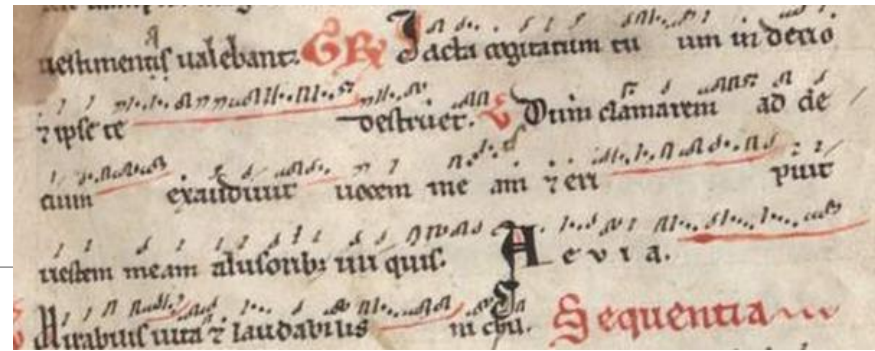 uestimentis ualebant. GR Iacta cogitatum tu um in deo
⁊ ipse te destruet. V Dum clamarem ad de
cum exaudiuit uocem me am ⁊ eri puit
uestem meam alusorib; ini quis. A e v i a.
Mirabilis uita ⁊ laudabilis
Sequentia